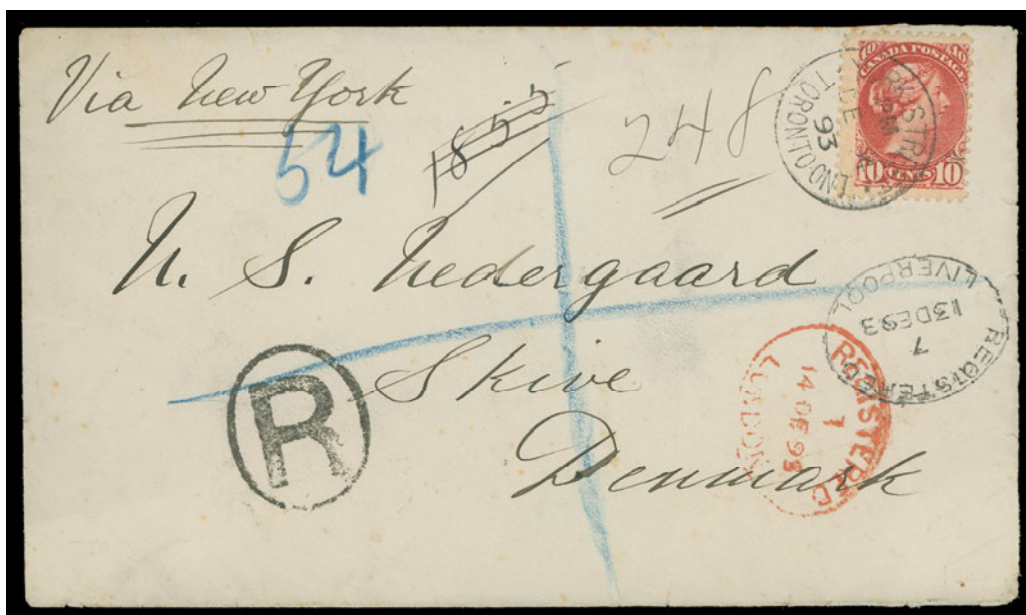 Via New York
54
1855
248
10 10
CANADA POSTAGE
10 CENTS 10
TORONTO.
PM
DE
93
N. S. Nedergaard
Skive
Denmark
R
REGISTERED
LIVERPOOL
13DE93
7
REGISTERED
LONDON
14 DE 93
7